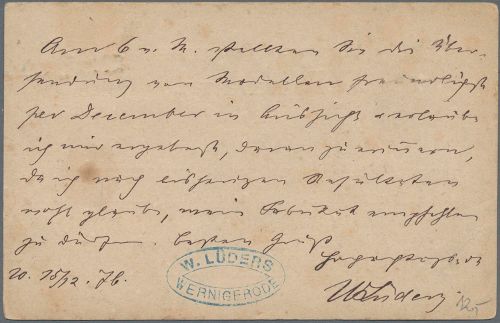 Am 6 v. M. stellten Sie die Über-
sendung von Modellen freundlichst
per December in Aussicht & erlaube
ich mir ergebenst, daran zu erinnern,
da ich nach bisherigen Resultaten
wohl glaube, mein Fabrikat empfehlen
zu dürfen. Besten Gruß
Hochachtungsvoll
W. LÜDERS
WERNIGERODE
W Lüders